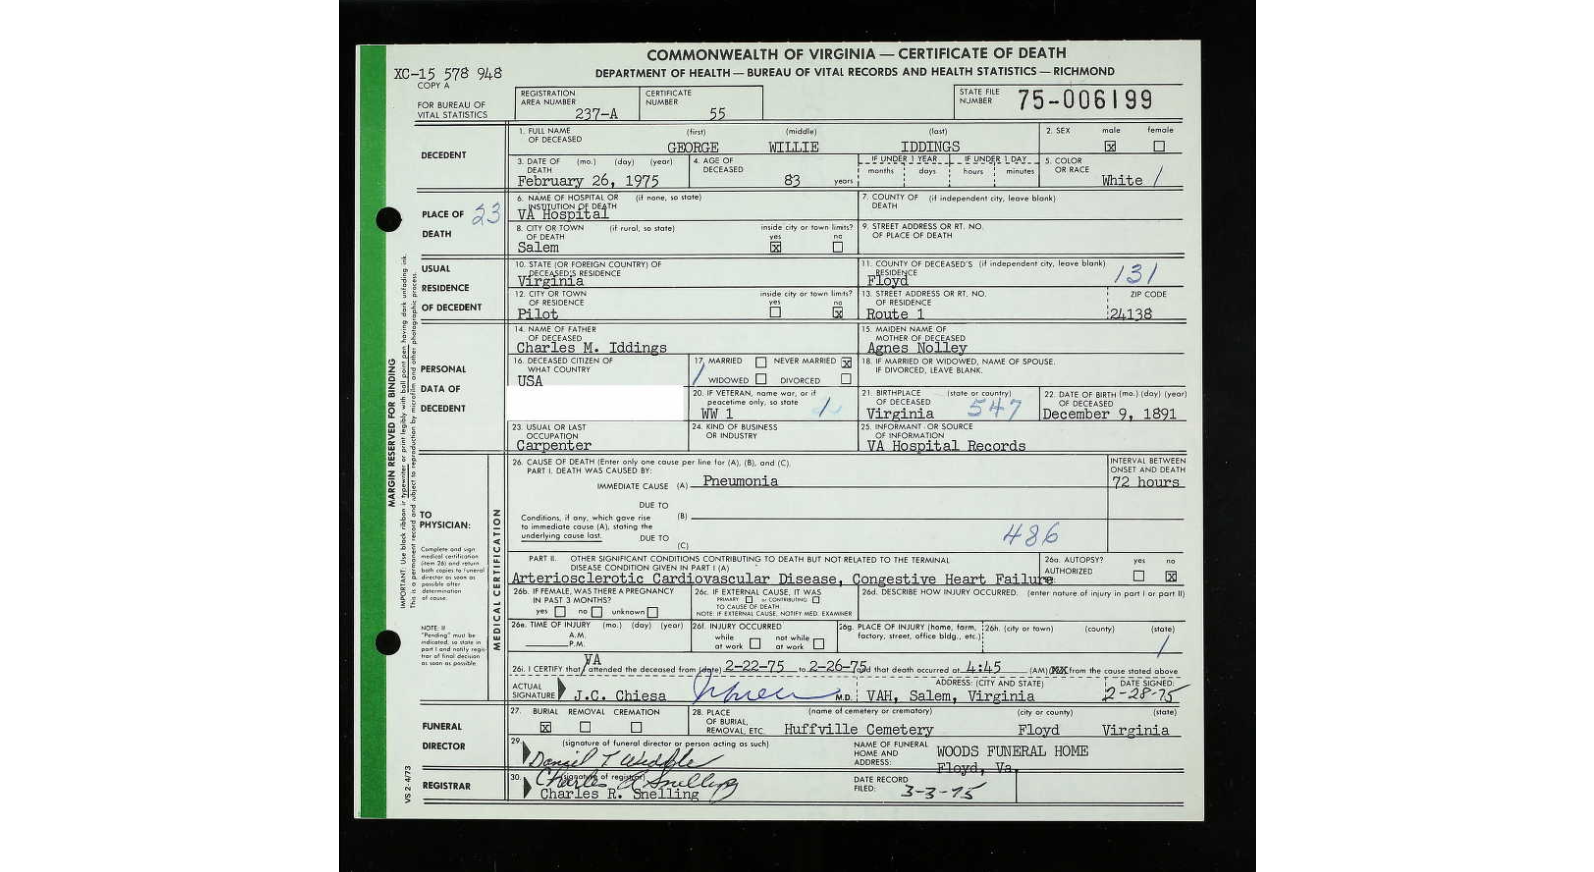 COMMONWEALTH OF VIRGINIA — CERTIFICATE OF DEATH
DEPARTMENT OF HEALTH — BUREAU OF VITAL RECORDS AND HEALTH STATISTICS — RICHMOND
XC-15 578 948
COPY A
FOR BUREAU OF VITAL STATISTICS
REGISTRATION AREA NUMBER 237-A
CERTIFICATE NUMBER 55
STATE FILE NUMBER 75-006199
DECEDENT
1. FULL NAME OF DECEASED (first) (middle) (last)
GEORGE WILLIE IDDINGS
2. SEX male ☒ female ☐
3. DATE OF DEATH (mo.) (day) (year)
February 26, 1975
4. AGE OF DECEASED 83 years
IF UNDER 1 YEAR months days
IF UNDER 1 DAY hours minutes
5. COLOR OR RACE White /
PLACE OF DEATH
23
6. NAME OF HOSPITAL OR INSTITUTION OF DEATH (if none, so state)
VA Hospital
7. COUNTY OF DEATH (if independent city, leave blank)
8. CITY OR TOWN OF DEATH (if rural, so state)
Salem
inside city or town limits? yes ☒ no ☐
9. STREET ADDRESS OR RT. NO. OF PLACE OF DEATH
USUAL RESIDENCE OF DECEDENT
10. STATE (OR FOREIGN COUNTRY) OF DECEASED'S RESIDENCE
Virginia
11. COUNTY OF DECEASED'S RESIDENCE (if independent city, leave blank)
Floyd
131
12. CITY OR TOWN OF RESIDENCE
Pilot
inside city or town limits? yes ☐ no ☒
13. STREET ADDRESS OR RT. NO. OF RESIDENCE
Route 1
ZIP CODE
24138
PERSONAL DATA OF DECEDENT
14. NAME OF FATHER OF DECEASED
Charles M. Iddings
15. MAIDEN NAME OF MOTHER OF DECEASED
Agnes Nolley
16. DECEASED CITIZEN OF WHAT COUNTRY
USA
17. MARRIED ☐ NEVER MARRIED ☒
WIDOWED ☐ DIVORCED ☐
/
18. IF MARRIED OR WIDOWED, NAME OF SPOUSE. IF DIVORCED, LEAVE BLANK.
20. IF VETERAN, name war, or if peacetime only, so state
WW 1
21. BIRTHPLACE OF DECEASED (state or country)
Virginia 547
22. DATE OF BIRTH (mo.) (day) (year) OF DECEASED
December 9, 1891
23. USUAL OR LAST OCCUPATION
Carpenter
24. KIND OF BUSINESS OR INDUSTRY
25. INFORMANT OR SOURCE OF INFORMATION
VA Hospital Records
MARGIN RESERVED FOR BINDING
IMPORTANT: Use black ribbon in typewriter or print legibly with ball point pen having dark unfading ink.
This is a permanent record and subject to reproduction by microfilm and other photographic process.
VS 2-4/73
TO PHYSICIAN:
Complete and sign medical certification (item 26) and return both copies to funeral director as soon as possible after determination of cause.
NOTE: If "Pending" must be indicated, so state in part I and notify registrar of final decision as soon as possible.
MEDICAL CERTIFICATION
26. CAUSE OF DEATH (Enter only one cause per line for (A), (B), and (C).
PART I. DEATH WAS CAUSED BY:
INTERVAL BETWEEN ONSET AND DEATH
IMMEDIATE CAUSE (A) Pneumonia
72 hours
DUE TO
(B)
Conditions, if any, which gave rise to immediate cause (A), stating the underlying cause last.
DUE TO
(C)
486
PART II. OTHER SIGNIFICANT CONDITIONS CONTRIBUTING TO DEATH BUT NOT RELATED TO THE TERMINAL DISEASE CONDITION GIVEN IN PART I (A)
Arteriosclerotic Cardiovascular Disease, Congestive Heart Failure
26a. AUTOPSY? AUTHORIZED yes ☐ no ☒
26b. IF FEMALE, WAS THERE A PREGNANCY IN PAST 3 MONTHS?
yes ☐ no ☐ unknown ☐
26c. IF EXTERNAL CAUSE, IT WAS
PRIMARY ☐ or CONTRIBUTING ☐
TO CAUSE OF DEATH
NOTE: IF EXTERNAL CAUSE, NOTIFY MED. EXAMINER
26d. DESCRIBE HOW INJURY OCCURRED. (enter nature of injury in part I or part II)
26e. TIME OF INJURY (mo.) (day) (year)
A.M.
P.M.
26f. INJURY OCCURRED
while at work ☐ not while at work ☐
26g. PLACE OF INJURY (home, farm, factory, street, office bldg., etc.)
26h. (city or town) (county) (state)
/
VA
26i. I CERTIFY that / attended the deceased from (date) 2-22-75 to 2-26-75 and that death occurred at 4:45 (AM) from the cause stated above
ACTUAL SIGNATURE J.C. Chiesa M.D.
ADDRESS: (CITY AND STATE)
VAH, Salem, Virginia
DATE SIGNED:
2-28-75
FUNERAL DIRECTOR
27. BURIAL REMOVAL CREMATION
☒ ☐ ☐
28. PLACE OF BURIAL, REMOVAL, ETC. (name of cemetery or crematory) (city or county) (state)
Huffville Cemetery Floyd Virginia
29. (signature of funeral director or person acting as such)
Daniel T Weddle
NAME OF FUNERAL HOME AND ADDRESS:
WOODS FUNERAL HOME
Floyd, Va.
REGISTRAR
30. (signature of registrar)
Charles R Snelling
Charles R. Snelling
DATE RECORD FILED:
3-3-75